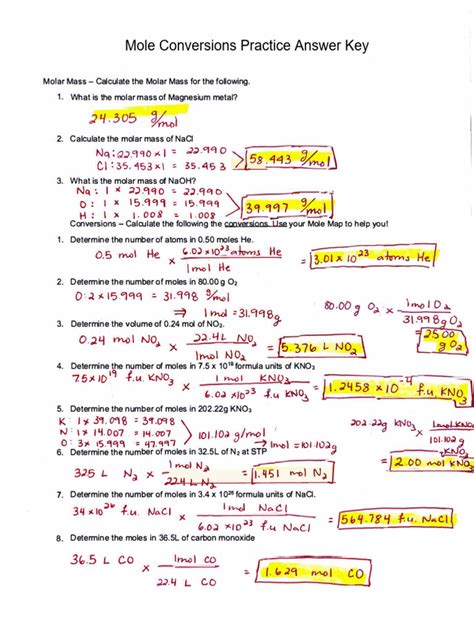 Mole Conversions Practice Answer Key
Molar Mass – Calculate the Molar Mass for the following.
1. What is the molar mass of Magnesium metal?
24.305 g/mol
2. Calculate the molar mass of NaCl
Na: 22.990 x 1 = 22.990
Cl: 35.453 x 1 = 35.453
58.443 g/mol
3. What is the molar mass of NaOH?
Na: 1 x 22.990 = 22.990
O: 1 x 15.999 = 15.999
H: 1 x 1.008 = 1.008
39.997 g/mol
Conversions – Calculate the following the conversions. Use your Mole Map to help you!
1. Determine the number of atoms in 0.50 moles He.
0.5 mol He x 6.02 x 10^23 atoms He / 1mol He = 3.01 x 10^23 atoms He
2. Determine the number of moles in 80.00 g O2
O: 2 x 15.999 = 31.998 g/mol
→ 1mol = 31.998g
80.00 g O2 x 1mol O2 / 31.998 g O2
= 2.500 g O2
3. Determine the volume of 0.24 mol of NO2.
0.24 mol NO2 x 22.4 L NO2 / 1mol NO2 = 5.376 L NO2
4. Determine the number of moles in 7.5 x 10^19 formula units of KNO3
7.5 x 10^19 f.u. KNO3 x 1 mol KNO3 / 6.02 x 10^23 f.u. KNO3 = 1.2458 x 10^-4 f.u. KNO3
5. Determine the number of moles in 202.22g KNO3
K: 1 x 39.098 = 39.098
N: 1 x 14.007 = 14.007
O: 3 x 15.999 = 47.997
101.102 g/mol
→ 1mol = 101.102g
202.22g KNO3 x 1mol KNO3 / 101.102 g KNO3
= 2.00 mol KNO3
6. Determine the number of moles in 32.5L of N2 at STP
325 L N2 x 1mol N2 / 22.4 L N2 = 1.451 mol N2
7. Determine the number of moles in 3.4 x 10^26 formula units of NaCl.
34 x 10^26 f.u. NaCl x 1mol NaCl / 6.02 x 10^23 f.u. NaCl = 564.784 f.u. NaCl
8. Determine the moles in 36.5L of carbon monoxide
36.5 L CO x 1mol CO / 22.4 L CO = 1.629 mol CO